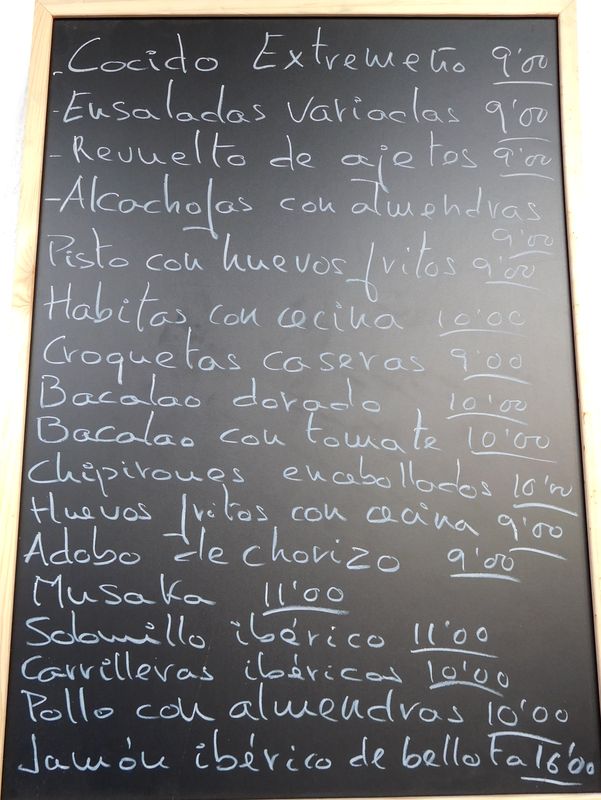 - Cocido Extremeño 9'00
- Ensaladas variadas 9'00
- Revuelto de ajetes 9'00
- Alcachofas con almendras
9'00
Pisto con huevos fritos 9'00
Habitas con cecina 10'00
Croquetas caseras 9'00
Bacalao dorado 10'00
Bacalao con tomate 10'00
Chipirones encebollados 10'00
Huevos fritos con cecina 9'00
Adobo de chorizo 9'00
Musaka 11'00
Solomillo ibérico 11'00
Carrilleras ibéricas 10'00
Pollo con almendras 10'00
Jamón ibérico de bellota 16'00